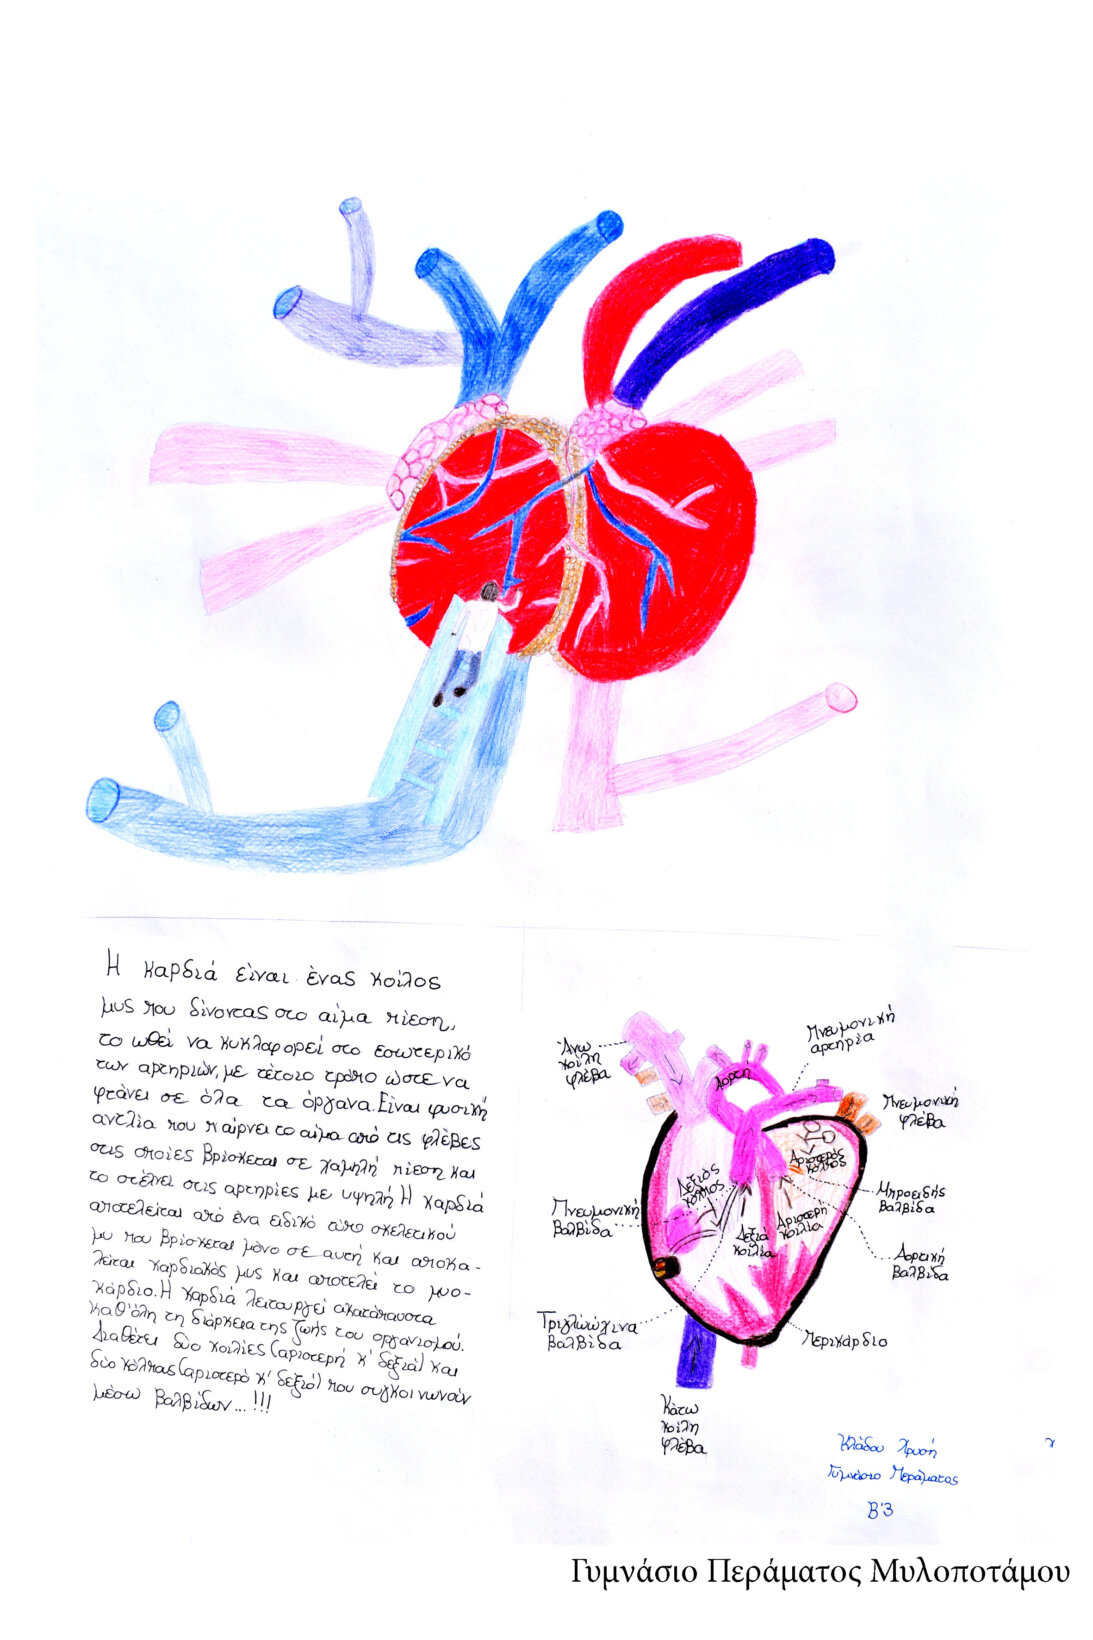 Η καρδιά είναι ένας κοίλος
μυς που δίνοντας στο αίμα πίεση,
το ωθεί να κυκλοφορεί στο εσωτερικό
των αρτηριών, με τέτοιο τρόπο ώστε να
φτάνει σε όλα τα όργανα. Είναι φυσική
αντλία που παίρνει το αίμα από τις φλέβες
στις οποίες βρίσκεται σε χαμηλή πίεση και
το στέλνει στις αρτηρίες με υψηλή Η καρδιά
αποτελείται από ένα ειδικό τύπο σκελετικού
μυ που βρίσκεται μόνο σε αυτή και αποκα-
λείται καρδιακός μυς και αποτελεί το μυο-
κάρδιο. Η καρδιά λειτουργεί ακατάπαυστα
καθ'όλη τη διάρκεια της ζωής του οργανισμού.
Διαθέτει δύο κοιλίες (αριστερή κ' δεξιά) και
δύο κόλπους (αριστερό κ' δεξιό) που συγκοινωνούν
μέσω βαλβίδων...!!!
Άνω
κοίλη
φλέβα
Αορτή
Πνευμονική
αρτηρία
Πνευμονική
φλέβα
Αριστερός
κόλπος
Δεξιός
κόλπος
Μιτροειδής
βαλβίδα
Πνευμονική
βαλβίδα
Δεξιά
κοιλία
Αριστερή
κοιλία
Αορτική
βαλβίδα
Τριγλώχινα
βαλβίδα
Περικάρδιο
Κάτω
κοίλη
φλέβα
Κλάδου Χρυσή
Γυμνάσιο Περάματος
Β'3
Γυμνάσιο Περάματος Μυλοποτάμου